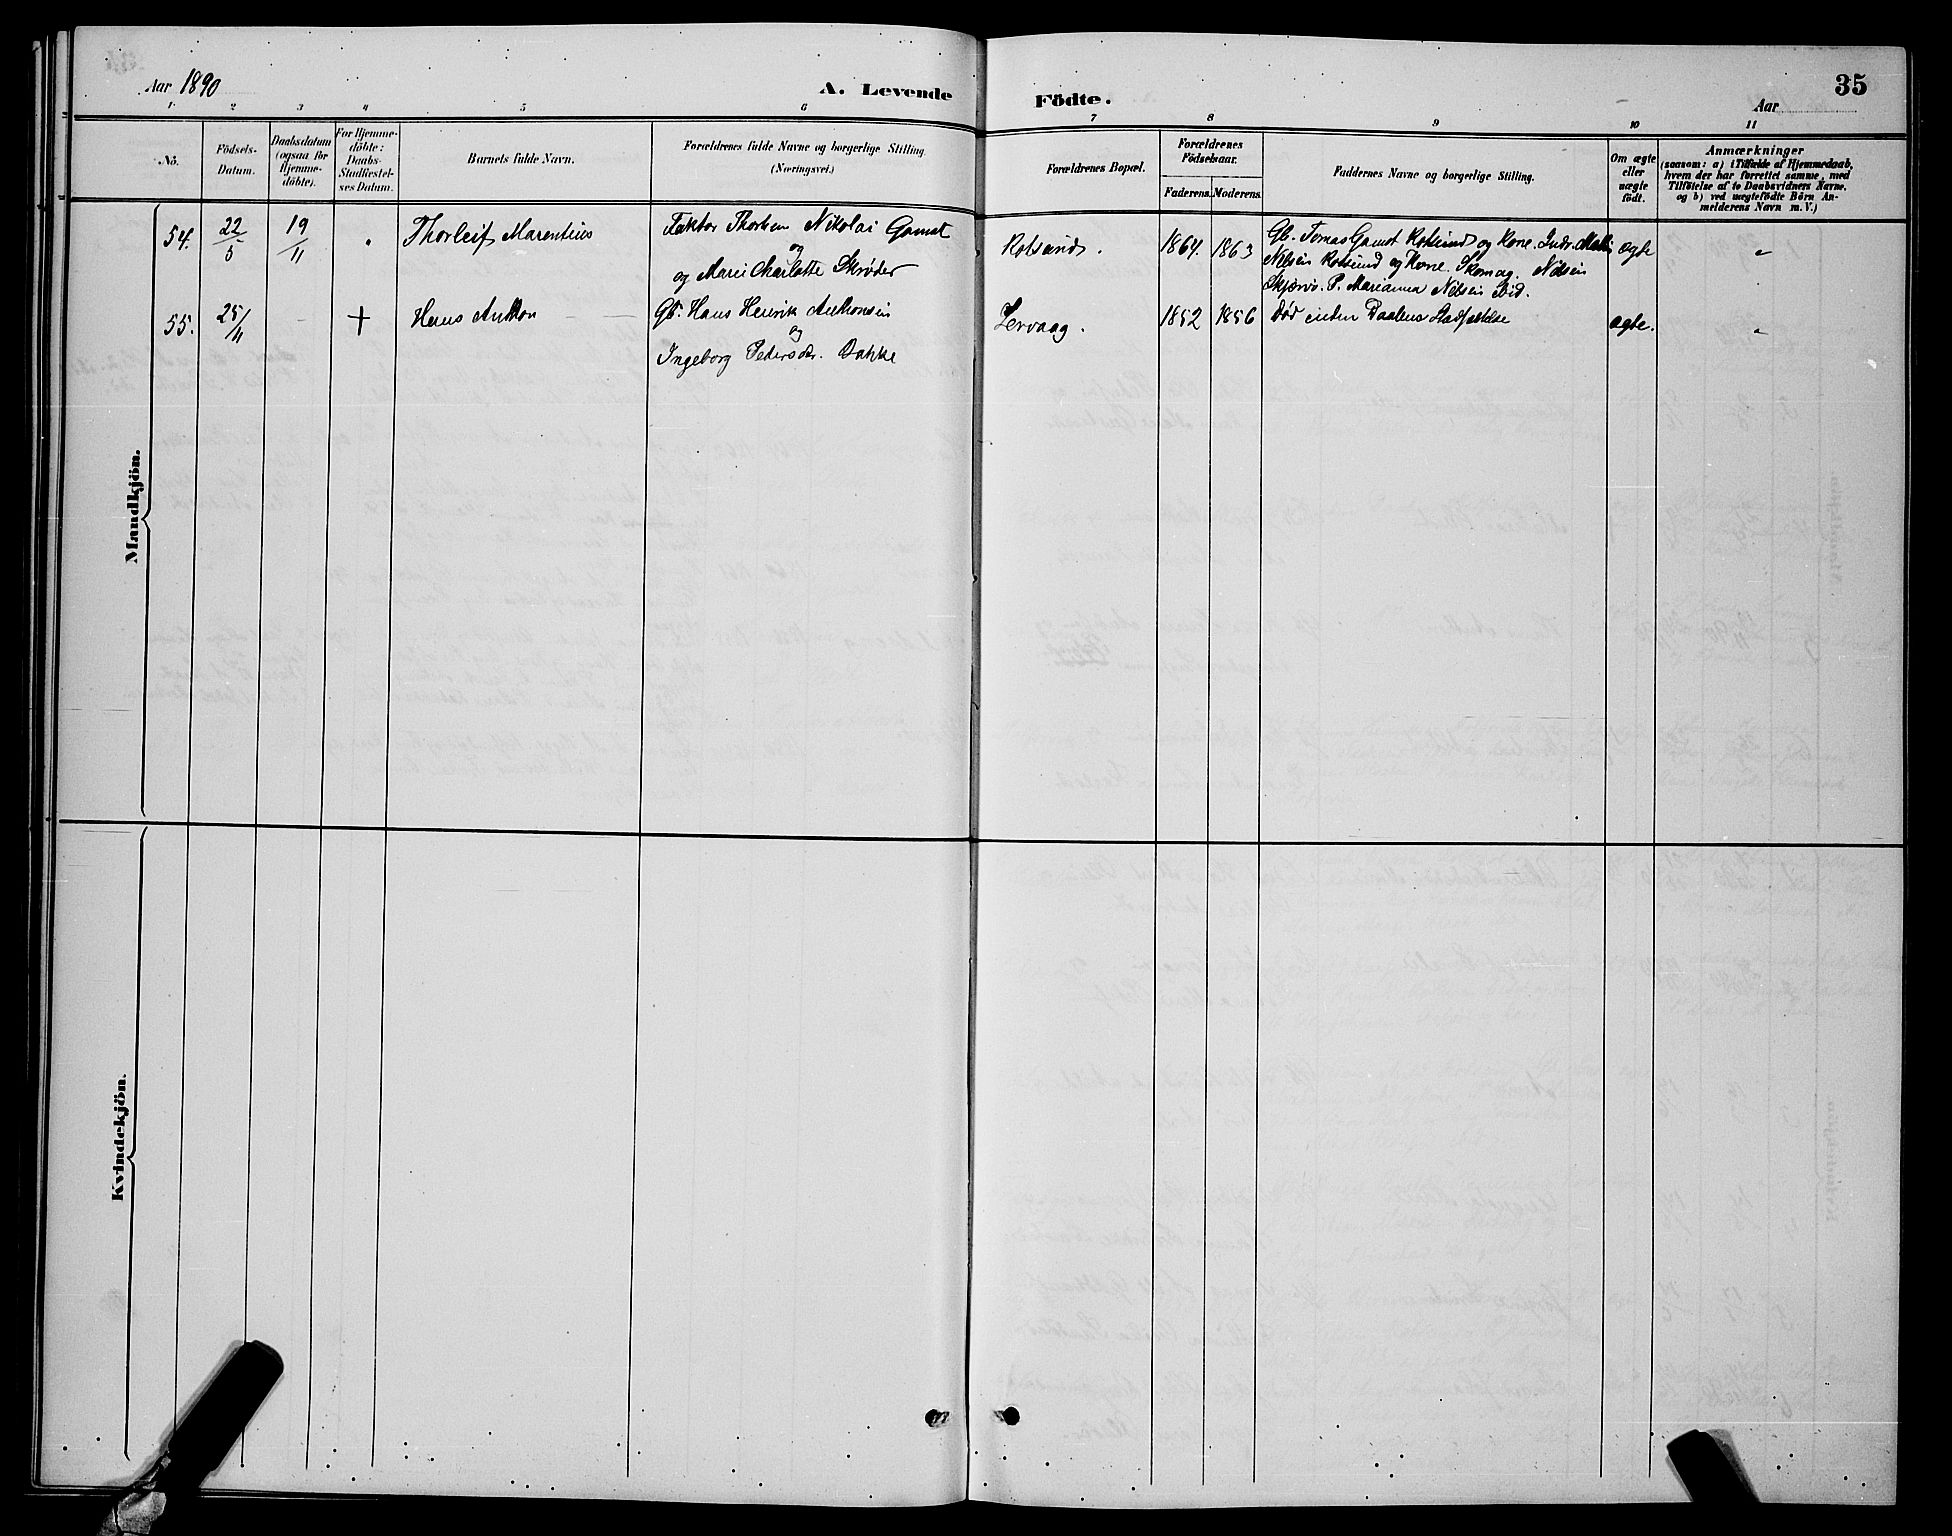 Aar 1890
A. Levende Födte.
Aar
35
1 2 3 4 5 6 7 8 9 10 11
No.
Födsels-Datum.
Daabsdatum (ogsaa for Hjemme-döbte).
For Hjemme-döbte: Daabs-Stadfæstel-ses Datum.
Barnets fulde Navn.
Forældrenes fulde Navne og borgerlige Stilling.
(Næringsvei.)
Forældrenes Bopæl.
Forældrenes Födselsaar.
Faderens. Moderens.
Faddernes Navne og borgerlige Stilling.
Om ægte eller uægte födt.
Anmærkninger
(saasom: a) i Tilfælde af Hjemmedaab,
hvem der har forrettet samme, med
Tilföielse af to Daabsvidners Navne,
og b) ved uægtefödte Börn An-
melderens Navn m. V.)
Mandkjön.
54. 22/5 19/11 Thorleif Marentius
Faktor Nikolai Gamst
og
og Marie Charlotte Skrøder
Rotsund. 1864. 1863
Gb. Tomas Gamst Rotsund og Kone. Indr.
Nilsen Rotsund og Kone. Skomag. Nilsen
Skjærvø. P. Marianna Nilsen ibid.
ægte "
55. 25/11 - + Hans Anthon
Gb. Hans Henrik Anthonsen
og
Ingeborg Pedersdr. Bakke
1852 1856 Død inden Daabens Stadfæstelse
ægte. "
Kvindekjön.